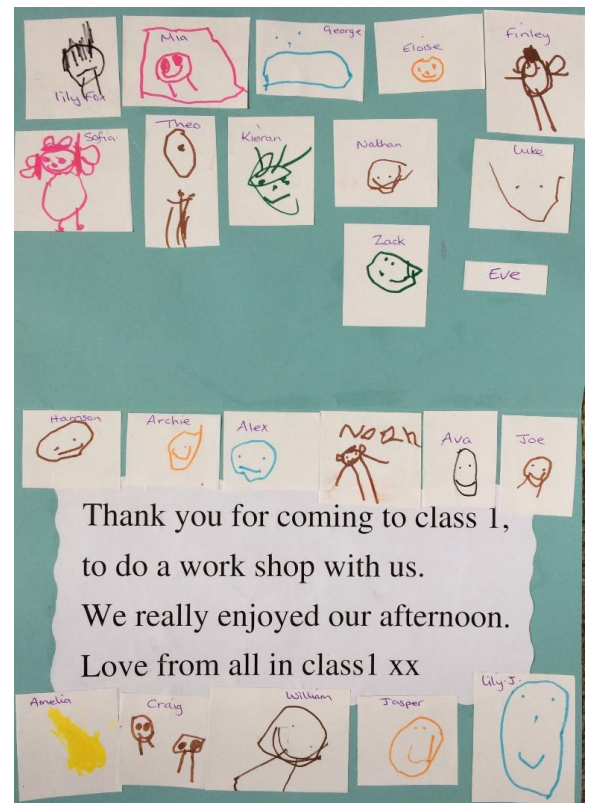 Mia
George
Eloise
Finley
lily Fox
Sofia
Theo
Kieran
Nathan
Luke
Zack
Eve
Harrison
Archie
Alex
Noah
Ava
Joe
Thank you for coming to class 1,
to do a work shop with us.
We really enjoyed our afternoon.
Love from all in class1 xx
Amelia
Craig
William
Jasper
Lily.J.